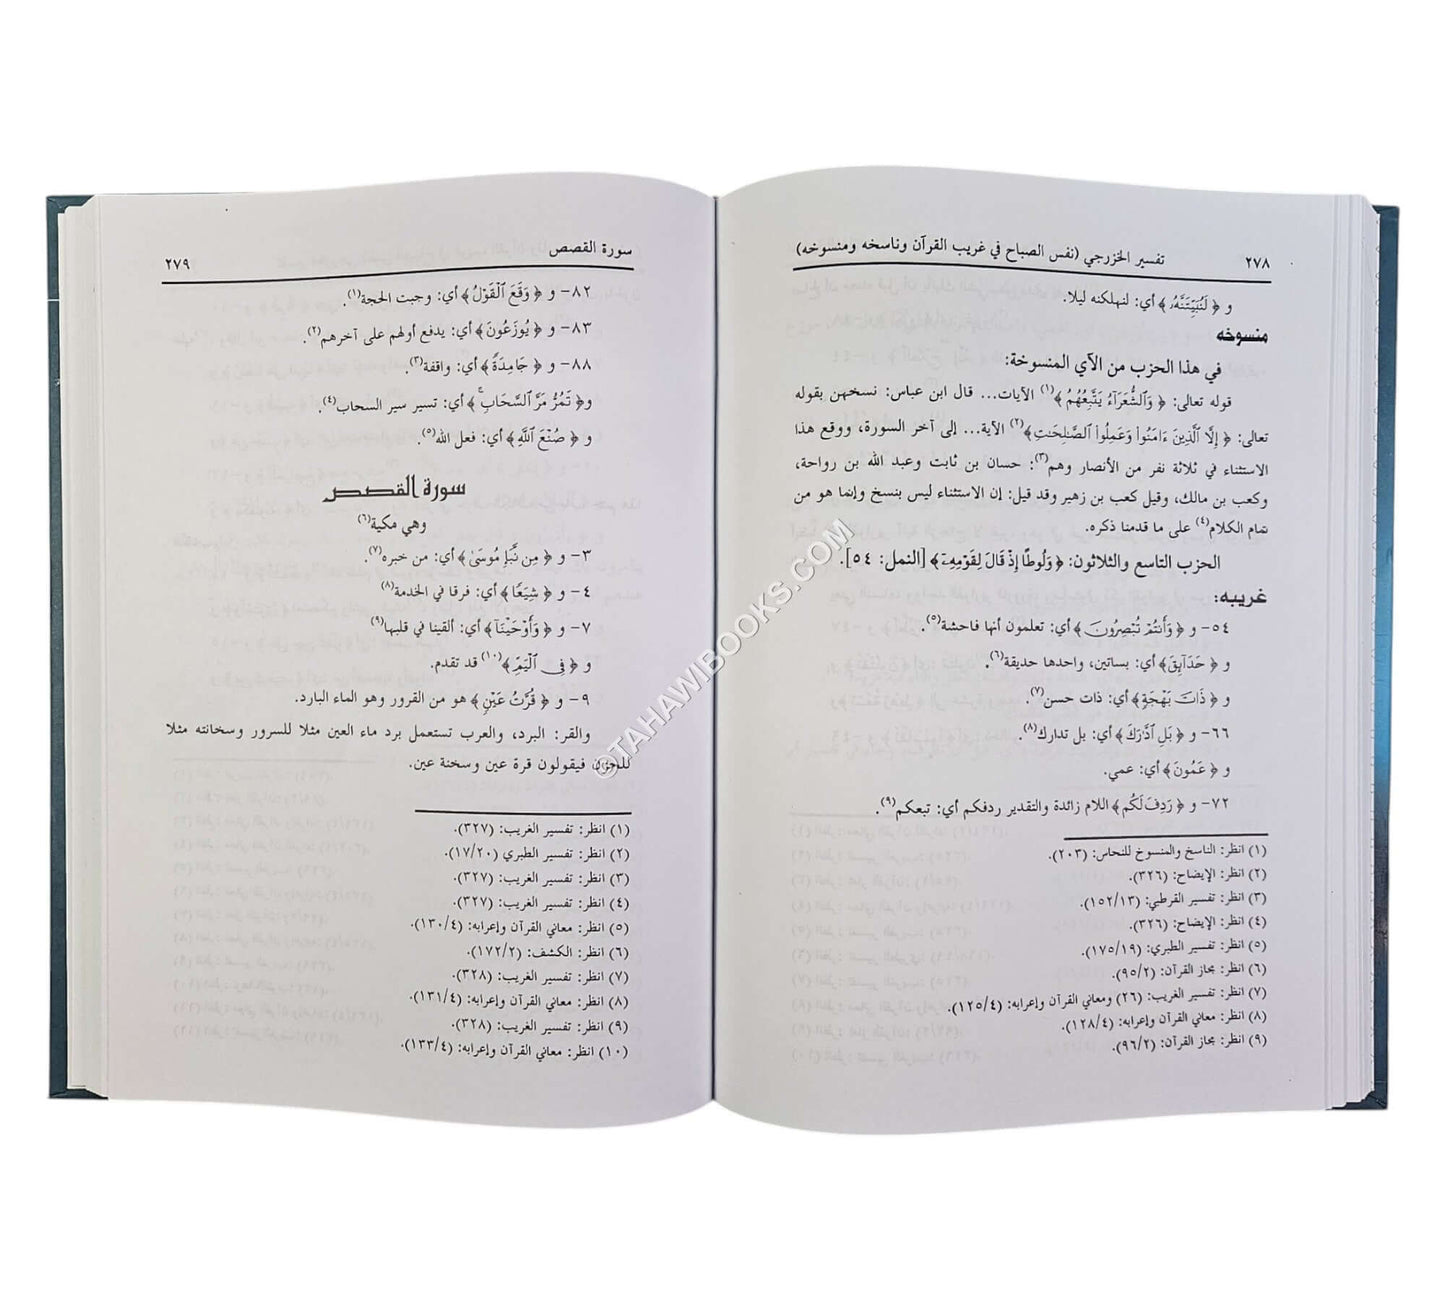 ٢٧٨ تفسير الخزرجي (نفس الصباح في غريب القرآن وناسخه ومنسوخه)
و ﴿ لَنُبَيِّتَنَّهُۥ ﴾ أي: لنهلكنه ليلا.
منسوخه
في هذا الحزب من الآي المنسوخة:
قوله تعالى: ﴿ وَٱلشُّعَرَآءُ يَتَّبِعُهُمُ ﴾(١) الآيات... قال ابن عباس: نسخهن بقوله
تعالى: ﴿ إِلَّا ٱلَّذِينَ ءَامَنُوا۟ وَعَمِلُوا۟ ٱلصَّـٰلِحَـٰتِ﴾(٢) الآية... إلى آخر السورة، ووقع هذا
الاستثناء في ثلاثة نفر من الأنصار وهم(٣): حسان بن ثابت وعبد الله بن رواحة،
وكعب بن مالك، وقيل كعب بن زهير وقد قيل: إن الاستثناء ليس بنسخ وإنما هو من
تمام الكلام(٤) على ما قدمنا ذكره.
الحزب التاسع والثلاثون: ﴿ وَلُوطًا إِذْ قَالَ لِقَوْمِهِۦٓ ﴾ [النمل: ٥٤].
غريبه:
٥٤- و ﴿ وَأَنتُمْ تُبْصِرُونَ ﴾ أي: تعلمون أنها فاحشة(٥).
و ﴿ حَدَآئِقَ﴾ أي: بساتين، واحدها حديقة(٦).
و ﴿ ذَاتَ بَهْجَةٍ﴾ أي: ذات حسن(٧).
٦٦- و ﴿ بَلِ ٱدَّٰرَكَ﴾ أي: بل تدارك(٨).
و ﴿ عَمُونَ﴾ أي: عمي.
٧٢- و ﴿ رَدِفَ لَكُم﴾ اللام زائدة والتقدير ردفكم أي: تبعكم(٩).
(١) انظر: الناسخ والمنسوخ للنحاس: (٢٠٣).
(٢) انظر: الإيضاح: (٣٢٦).
(٣) انظر: تفسير القرطبي: (١٥٢/١٣).
(٤) انظر: الإيضاح: (٣٢٦).
(٥) انظر: تفسير الطبري: (١٧٥/١٩).
(٦) انظر: مجاز القرآن: (٩٥/٢).
(٧) انظر: تفسير الغريب: (٢٦) ومعاني القرآن وإعرابه: (١٢٥/٤).
(٨) انظر: معاني القرآن وإعرابه: (١٢٨/٤).
(٩) انظر: مجاز القرآن: (٩٦/٢).
سورة القصص ٢٧٩
٨٢- و ﴿ وَقَعَ ٱلْقَوْلُ﴾ أي: وجبت الحجة(١).
٨٣- و ﴿ يُوزَعُونَ﴾ أي: يدفع أولهم على آخرهم(٢).
٨٨- و ﴿ جَامِدَةً﴾ أي: واقفة(٣).
و﴿ تَمُرُّ مَرَّ ٱلسَّحَابِ ۚ﴾ أي: تسير سير السحاب(٤).
و ﴿ صُنْعَ ٱللَّهِ﴾ أي: فعل الله(٥).
سورة القصص
وهي مكية(٦)
٣- و ﴿ مِن نَّبَإِ مُوسَىٰ﴾ أي: من خبره(٧).
٤- و ﴿ شِيَعًا﴾ أي: فرقا في الخدمة(٨)
٧- و ﴿ وَأَوْحَيْنَآ﴾ أي: ألقينا في قلبها(٩)
و ﴿ فِى ٱلْيَمِّ﴾(١٠) قد تقدم.
٩- و ﴿ قُرَّتُ عَيْنٍ﴾ هو من القرور وهو الماء البارد.
والقر: البرد، والعرب تستعمل برد ماء العين مثلا للسرور وسخانته مثلا
للحزن فيقولون قرة عين وسخنة عين.
(١) انظر: تفسير الغريب: (٣٢٧).
(٢) انظر: تفسير الطبري (١٧/٢٠).
(٣) انظر: تفسير الغريب: (٣٢٧).
(٤) انظر: تفسير الغريب: (٣٢٧).
(٥) انظر: معاني القرآن وإعرابه: (١٣٠/٤).
(٦) انظر: الكشف: (١٧٢/٢).
(٧) انظر: تفسير الغريب: (٣٢٨).
(٨) انظر: معاني القرآن وإعرابه: (١٣١/٤).
(٩) انظر: تفسير الغريب: (٣٢٨).
(١٠) انظر: معاني القرآن وإعرابه: (١٣٣/٤).
©TAHAWIBOOKS.COM